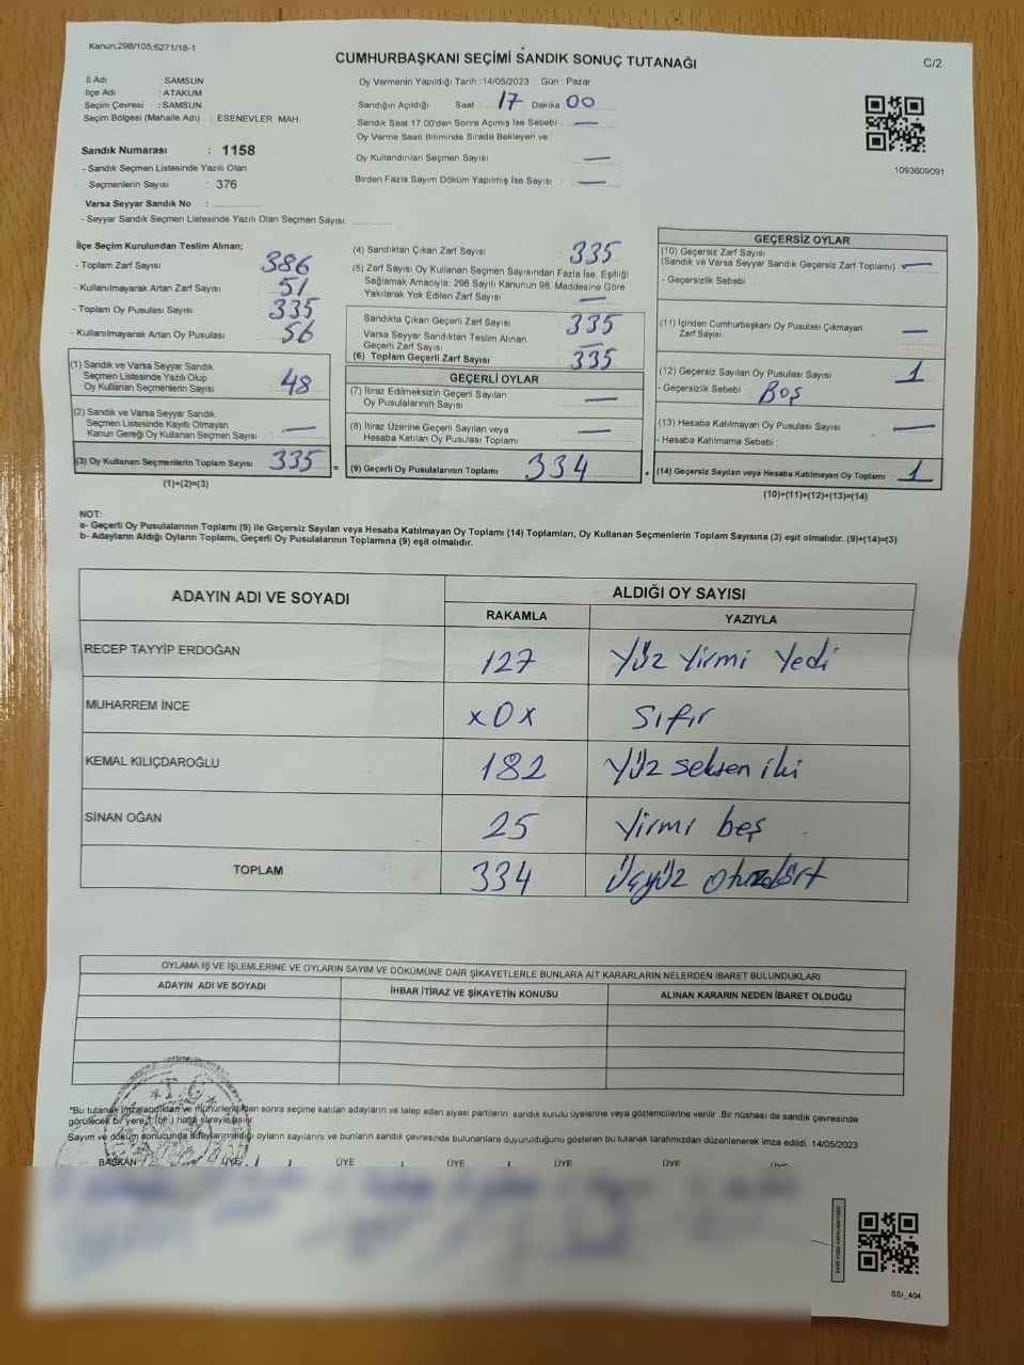 Kanun;298/105;6271/18-1
CUMHURBAŞKANI SEÇİMİ SANDIK SONUÇ TUTANAĞI
C/2
İl Adı : SAMSUN
İlçe Adı : ATAKUM
Seçim Çevresi : SAMSUN
Seçim Bölgesi (Mahalle Adı) : ESENEVLER MAH.
Oy Vermenin Yapıldığı Tarih : 14/05/2023 Gün : Pazar
Sandığın Açıldığı Saat : 17 Dakika 00
Sandık Saat 17.00'den Sonra Açımış İse Sebebi : —
Oy Verme Saati Bitiminde Sırada Bekleyen ve
Oy Kullandırılan Seçmen Sayısı : —
Birden Fazla Sayım Döküm Yapılmış İse Sayısı : —
1093609091
Sandık Numarası : 1158
- Sandık Seçmen Listesinde Yazılı Olan
Seçmenlerin Sayısı : 376
Varsa Seyyar Sandık No :
- Seyyar Sandık Seçmen Listesinde Yazılı Olan Seçmen Sayısı:
İlçe Seçim Kurulundan Teslim Alınan;
- Toplam Zarf Sayısı 386
- Kullanılmayarak Artan Zarf Sayısı 51
- Toplam Oy Pusulası Sayısı 335
- Kullanılmayarak Artan Oy Pusulası 56
(1) Sandık ve Varsa Seyyar Sandık
Seçmen Listesinde Yazılı Olup
Oy Kullanan Seçmenlerin Sayısı 48
(2) Sandık ve Varsa Seyyar Sandık
Seçmen Listesinde Kayıtlı Olmayan
Kanun Gereği Oy Kullanan Seçmen Sayısı —
(3) Oy Kullanan Seçmenlerin Toplam Sayısı 335
(1)+(2)=(3)
(4) Sandıktan Çıkan Zarf Sayısı 335
(5) Zarf Sayısı Oy Kullanan Seçmen Sayısından Fazla İse, Eşitliği
Sağlamak Amacıyla, 298 Sayılı Kanunun 98. Maddesine Göre
Yakılarak Yok Edilen Zarf Sayısı —
Sandıkta Çıkan Geçerli Zarf Sayısı 335
Varsa Seyyar Sandıktan Teslim Alınan
Geçerli Zarf Sayısı —
(6) Toplam Geçerli Zarf Sayısı 335
=
GEÇERLİ OYLAR
(7) İtiraz Edilmeksizin Geçerli Sayılan
Oy Pusulalarının Sayısı —
(8) İtiraz Üzerine Geçerli Sayılan veya
Hesaba Katılan Oy Pusulası Toplamı —
(9) Geçerli Oy Pusulalarının Toplamı 334
+
GEÇERSİZ OYLAR
(10) Geçersiz Zarf Sayısı
(Sandık ve Varsa Seyyar Sandık Geçersiz Zarf Toplamı) —
- Geçersizlik Sebebi :
(11) İçinden Cumhurbaşkanı Oy Pusulası Çıkmayan
Zarf Sayısı —
(12) Geçersiz Sayılan Oy Pusulası Sayısı 1
- Geçersizlik Sebebi : BOŞ
(13) Hesaba Katılmayan Oy Pusulası Sayısı —
- Hesaba Katılmama Sebebi :
(14) Geçersiz Sayılan veya Hesaba Katılmayan Oy Toplamı 1
(10)+(11)+(12)+(13)=(14)
NOT:
a- Geçerli Oy Pusulalarının Toplamı (9) ile Geçersiz Sayılan veya Hesaba Katılmayan Oy Toplamı (14) Toplamları, Oy Kullanan Seçmenlerin Toplam Sayısına (3) eşit olmalıdır. (9)+(14)=(3)
b- Adayların Aldığı Oyların Toplamı, Geçerli Oy Pusulalarının Toplamına (9) eşit olmalıdır.
ADAYIN ADI VE SOYADI
ALDIĞI OY SAYISI
RAKAMLA YAZIYLA
RECEP TAYYİP ERDOĞAN 127 Yüz Yirmi Yedi
MUHARREM İNCE x0x Sıfır
KEMAL KILIÇDAROĞLU 182 Yüz seksen iki
SİNAN OĞAN 25 Yirmi beş
TOPLAM 334 Üçyüz otuzdört
OYLAMA İŞ VE İŞLEMLERİNE VE OYLARIN SAYIM VE DÖKÜMÜNE DAİR ŞİKAYETLERLE BUNLARA AİT KARARLARIN NELERDEN İBARET BULUNDUKLARI
ADAYIN ADI VE SOYADI İHBAR İTİRAZ VE ŞİKAYETİN KONUSU ALINAN KARARIN NEDEN İBARET OLDUĞU
T.C.
*Bu tutanak imzalandıktan ve mühürlendikten sonra seçime katılan adayların ve talep eden siyasi partilerin sandık kurulu üyelerine veya gözlemcilerine verilir. Bir nüshası da sandık çevresinde
görülecek bir yere 1 (bir) hafta süreyle asılır.
Sayım ve döküm sonucunda adayların aldığı oyların sayılarını ve bunların sandık çevresinde bulunanlara duyurulduğunu gösteren bu tutanak tarafımızdan düzenlenerek imza edildi. 14/05/2023
BAŞKAN ÜYE ÜYE ÜYE ÜYE ÜYE
SSI_404